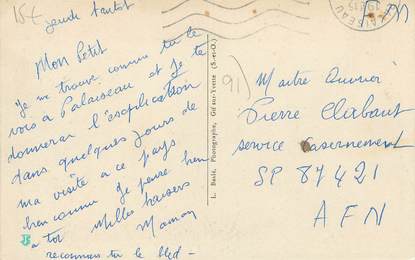 15€
jeudi tantot
Mon Petit
Je me trouve comme tu le
vois a Palaiseau et je te
donnerai l'esoplication
dans quelques jours de
ma visite a ce pays
bien connu Je pense bien
a toi Milles baisers
Maman
reconnais tu le bled -
L. Basle, Photographe, Gif-sur-Yvette (S.-et-O.)
PALAISEAU
91
Maitre Ouvrier
Pierre Clabaut
service Casernement
SP 87421
AFN